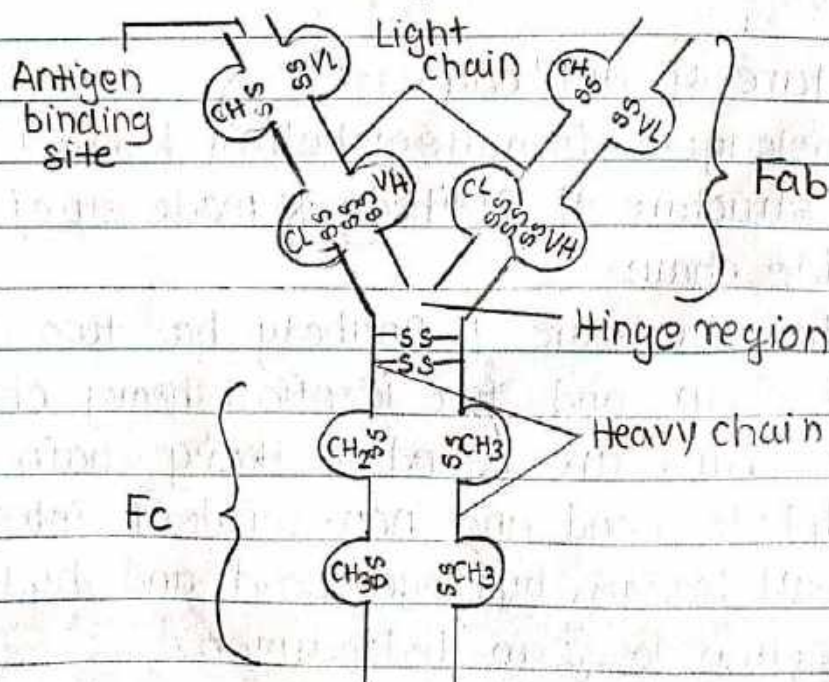 Antigen
binding
site
Light
chain
CH
S
S
SS
VL
CH
SS
SS
VL
Fab
CL
SS
SS
SS
VH
CL
SS
SS
SS
VH
Hinge region
SS
SS
Heavy chain
Fc
CH2
SS
SS
CH3
CH3
SS
SS
CH3